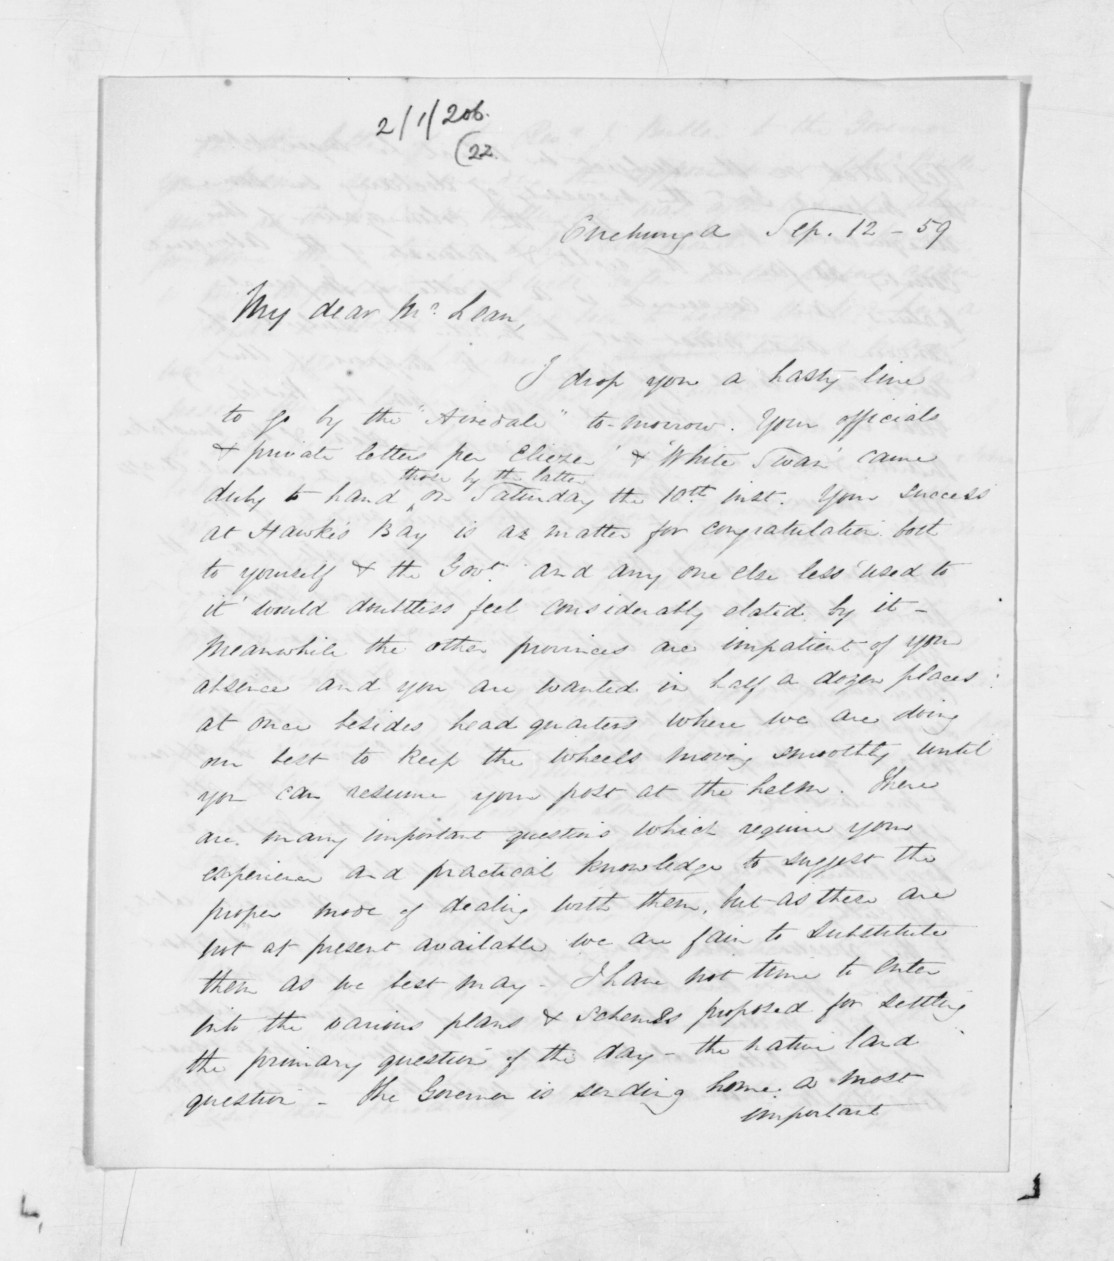 2/1/206.
(22.
Onehunga Sep. 12 - 59
My dear Mc. Lean,
I drop you a hasty line
to go by the "Airedale" to-morrow. Your officials
& private letters per 'Cliezer' & 'White Swan' came
those by the latter
duly to hand on Saturday the 10th inst. Your success
at Hawke's Bay is a matter for congratulation both
to yourself & the Govt. and any one else less 'used to
it' would doubtless feel considerably elated by it -
Meanwhile the other provinces are impatient of your
absence and you are wanted in half a dozen places
at once besides head quarters where we are doing
our best to keep the wheels moving smoothly until
you can resume your post at the helm. There
are many important questions which require your
experience and practical knowledge to suggest the
proper mode of dealing with them, but as these are
not at present available we are fain to substitute
them as we best may - I have not time to enter
into the various plans & schemes proposed for settling
the primary question of the day - the native land
question - The Governor is sending home a most
important